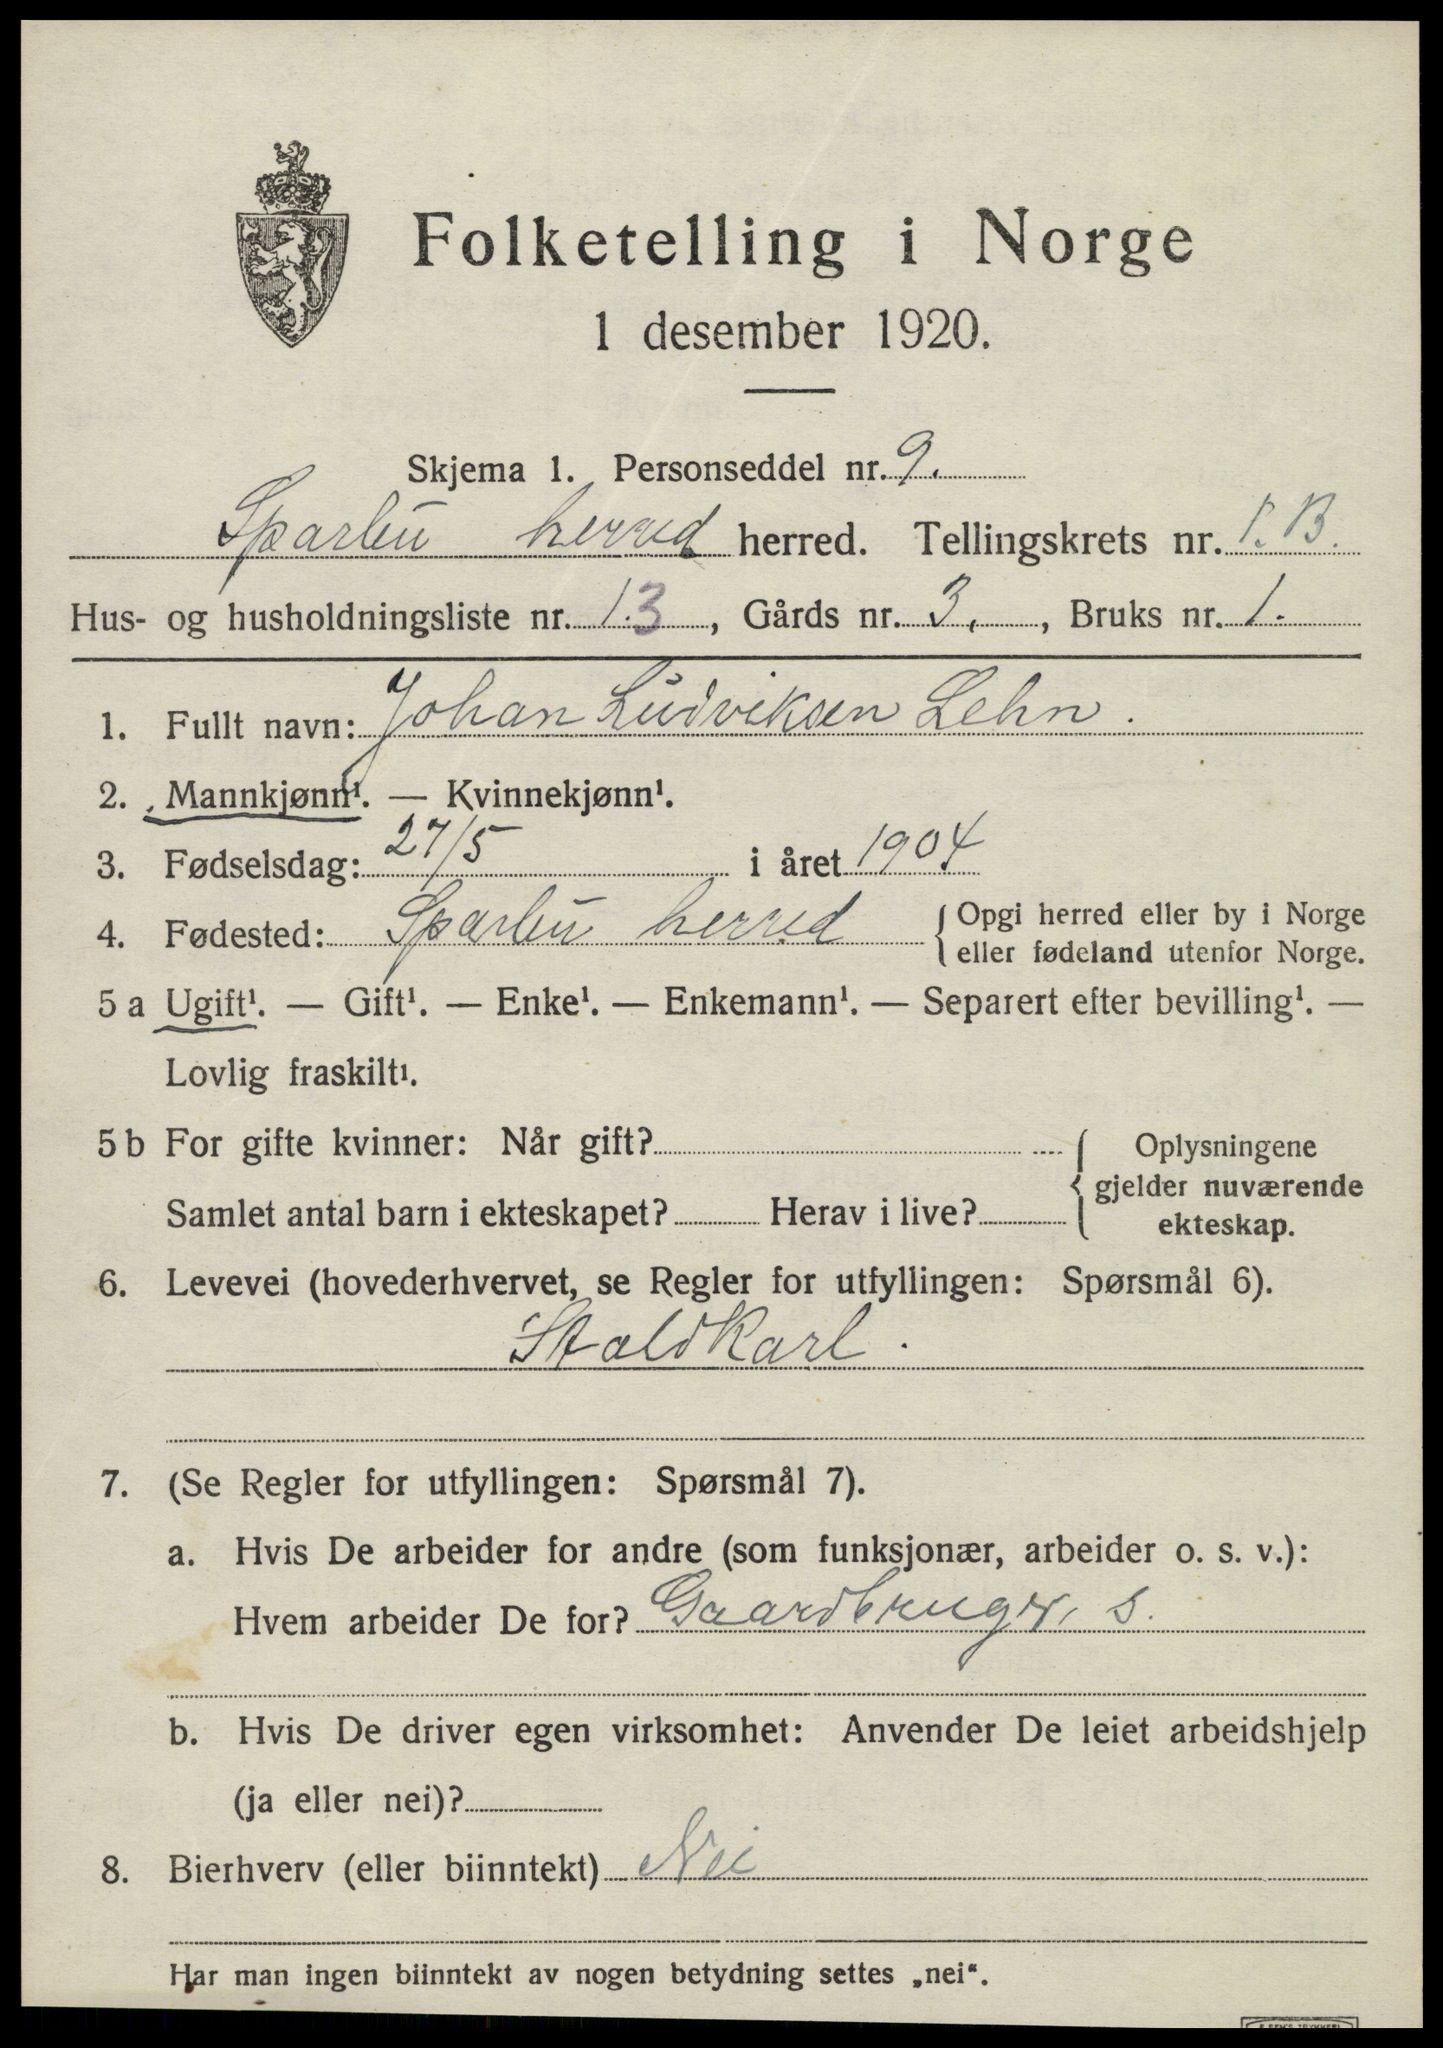 Folketelling i Norge
1 desember 1920.
Skjema 1. Personseddel nr. 9.
Sparbu herred herred. Tellingskrets nr. 1. B.
Hus- og husholdningsliste nr. 1.3, Gårds nr. 3., Bruks nr. 1.
1. Fullt navn: Johan Ludviksen Lehn.
2. Mannkjønn¹. — Kvinnekjønn¹.
3. Fødselsdag: 27/5 i året 1904
4. Fødested: Sparbu herred { Opgi herred eller by i Norge
eller fødeland utenfor Norge.
5 a Ugift¹. — Gift¹. — Enke¹. — Enkemann¹. — Separert efter bevilling¹. —
Lovlig fraskilt¹.
5 b For gifte kvinner: Når gift? { Oplysningene
gjelder nuværende
Samlet antal barn i ekteskapet? Herav i live? ekteskap.
6. Levevei (hovederhvervet, se Regler for utfyllingen: Spørsmål 6).
Staldkarl.
7. (Se Regler for utfyllingen: Spørsmål 7).
a. Hvis De arbeider for andre (som funksjonær, arbeider o. s. v.):
Hvem arbeider De for? Gaardbruger, s.
b. Hvis De driver egen virksomhet: Anvender De leiet arbeidshjelp
(ja eller nei)?
8. Bierhverv (eller biinntekt) Nei
Har man ingen biinntekt av nogen betydning settes „nei".